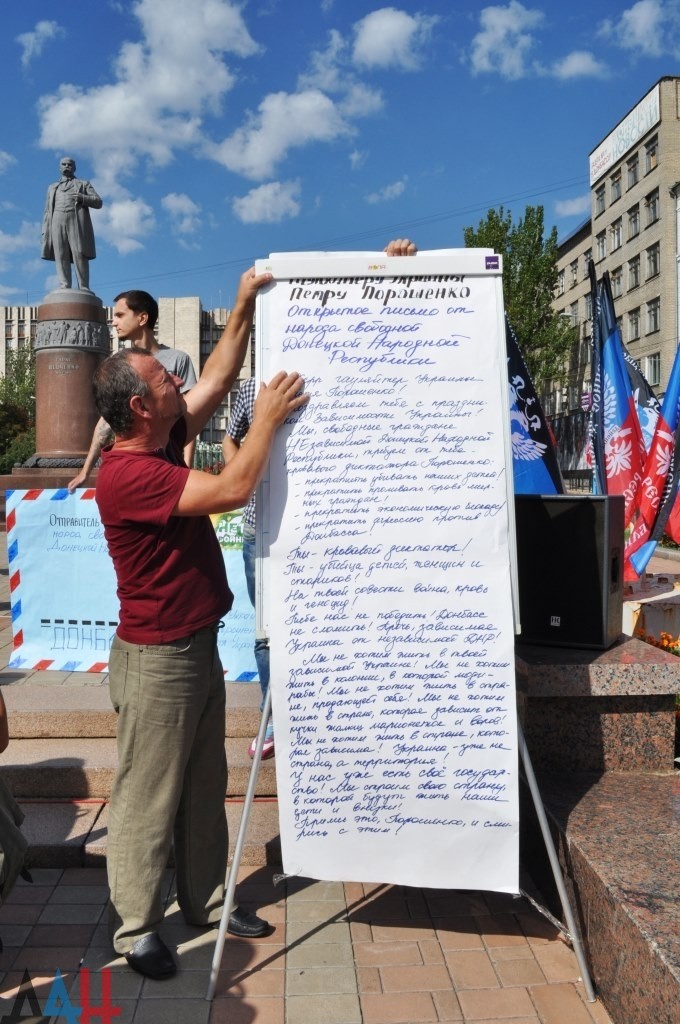 Петру Порошенко
Открытое письмо от
народа свободной
Донецкой Народной
Республики
гауляйтер Украины
Порошенко!
Мы, свободные граждане
Независимой Донецкой Народной
Республики, требуем от тебя -
кровавого диктатора Порошенко:
- прекратить убивать наших детей!
- прекратить проливать кровь мир-
ных граждан!
- прекратить экономическую блокаду!
- прекратить агрессию против
Донбасса!
Ты - кровавый диктатор!
Ты - убийца детей, женщин и
стариков!
На твоей совести война, кровь
и геноцид!
Тебе нас не победить! Донбасс
не сломить! Прочь, зависимая
Украина от независимой ДНР!
Мы не хотим жить в твоей
зависимой Украине! Мы не хотим
жить в колонии, в которой люди -
рабы! Мы не хотим жить в стра-
не, продающей себя! Мы не хотим
жить в стране, которая зависит от
кучки жалких марионеток и воров!
Мы не хотим жить в стране, кото-
рая зависима! Украина - уже не
страна, а территория!
У нас уже есть своё государ-
ство! Мы строим свою страну,
в которой будут жить наши
дети и внуки!
Прими это, Порошенко, и сми-
рись с этим!
Отправитель
народ
Донецкой
ДОНБ
ДАН